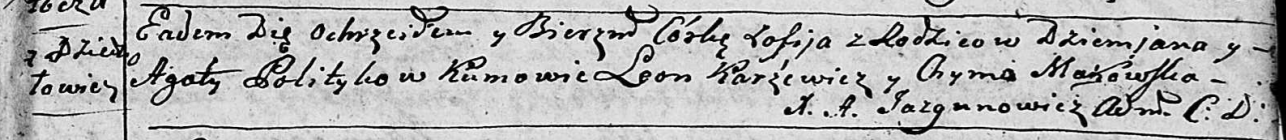 z Dzied
łowicz
Eadem Die ochrzciłem y Bierzm Córkę Zofija z Rodzicow Dziemjana y
Agaty Politykow Kumowie Leon Karżewicz y Chyma Makowska
X. A. Jazgunowicz Adm. C. D.